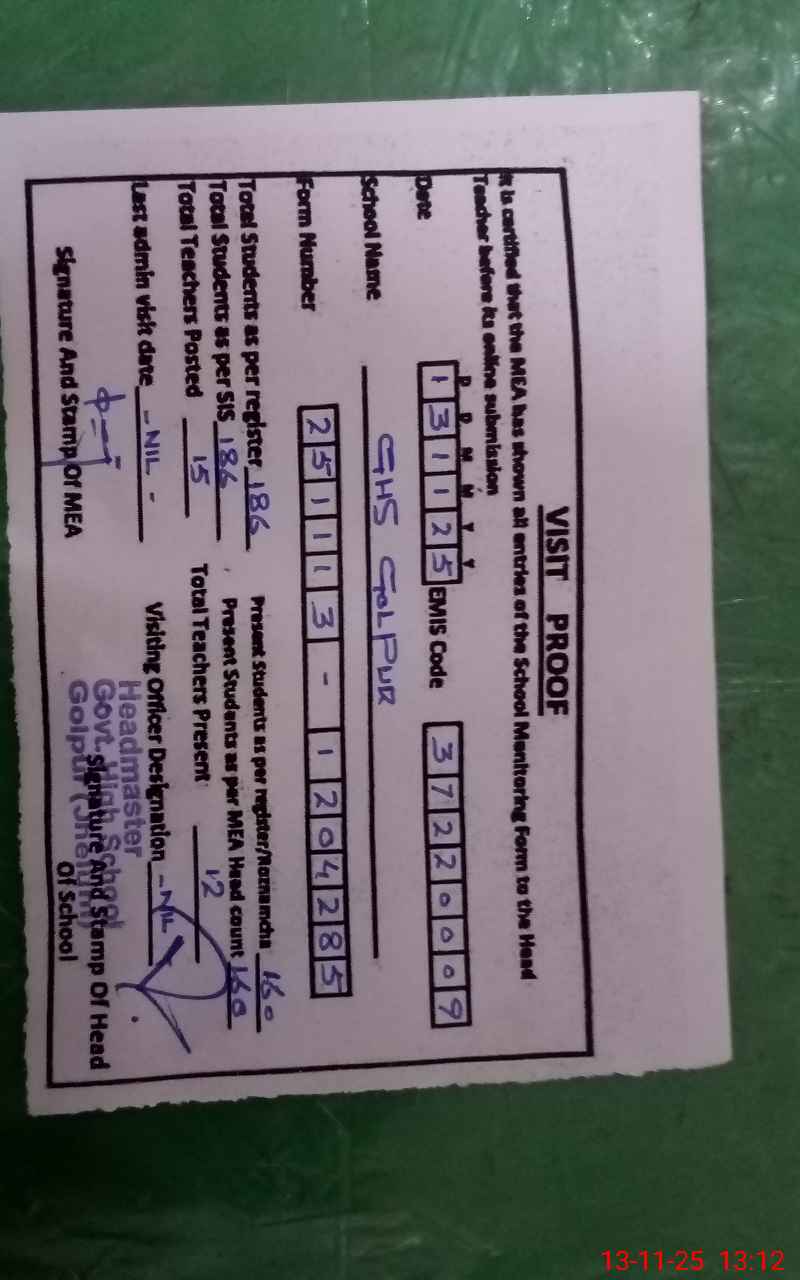 VISIT PROOF
It is certified that the MEA has shown all entries of the School Monitoring Form to the Head
Teacher before its online submission
D D M M Y Y
Date 131125 EMIS Code 37220009
School Name GHS GOLPUR
Form Number 251113-1204285
Total Students as per register 186 Present Students as per register/Roznamcha 160
Total Students as per SIS 186 Present Students as per MEA Head count 160
Total Teachers Posted 15 Total Teachers Present 12
Last admin visit date -NIL- Visiting Officer Designation -NIL-
Headmaster
Govt. High School
Golpur (Jhelum)
Signature And Stamp Of MEA Signature And Stamp Of Head
Of School
13-11-25 13:12